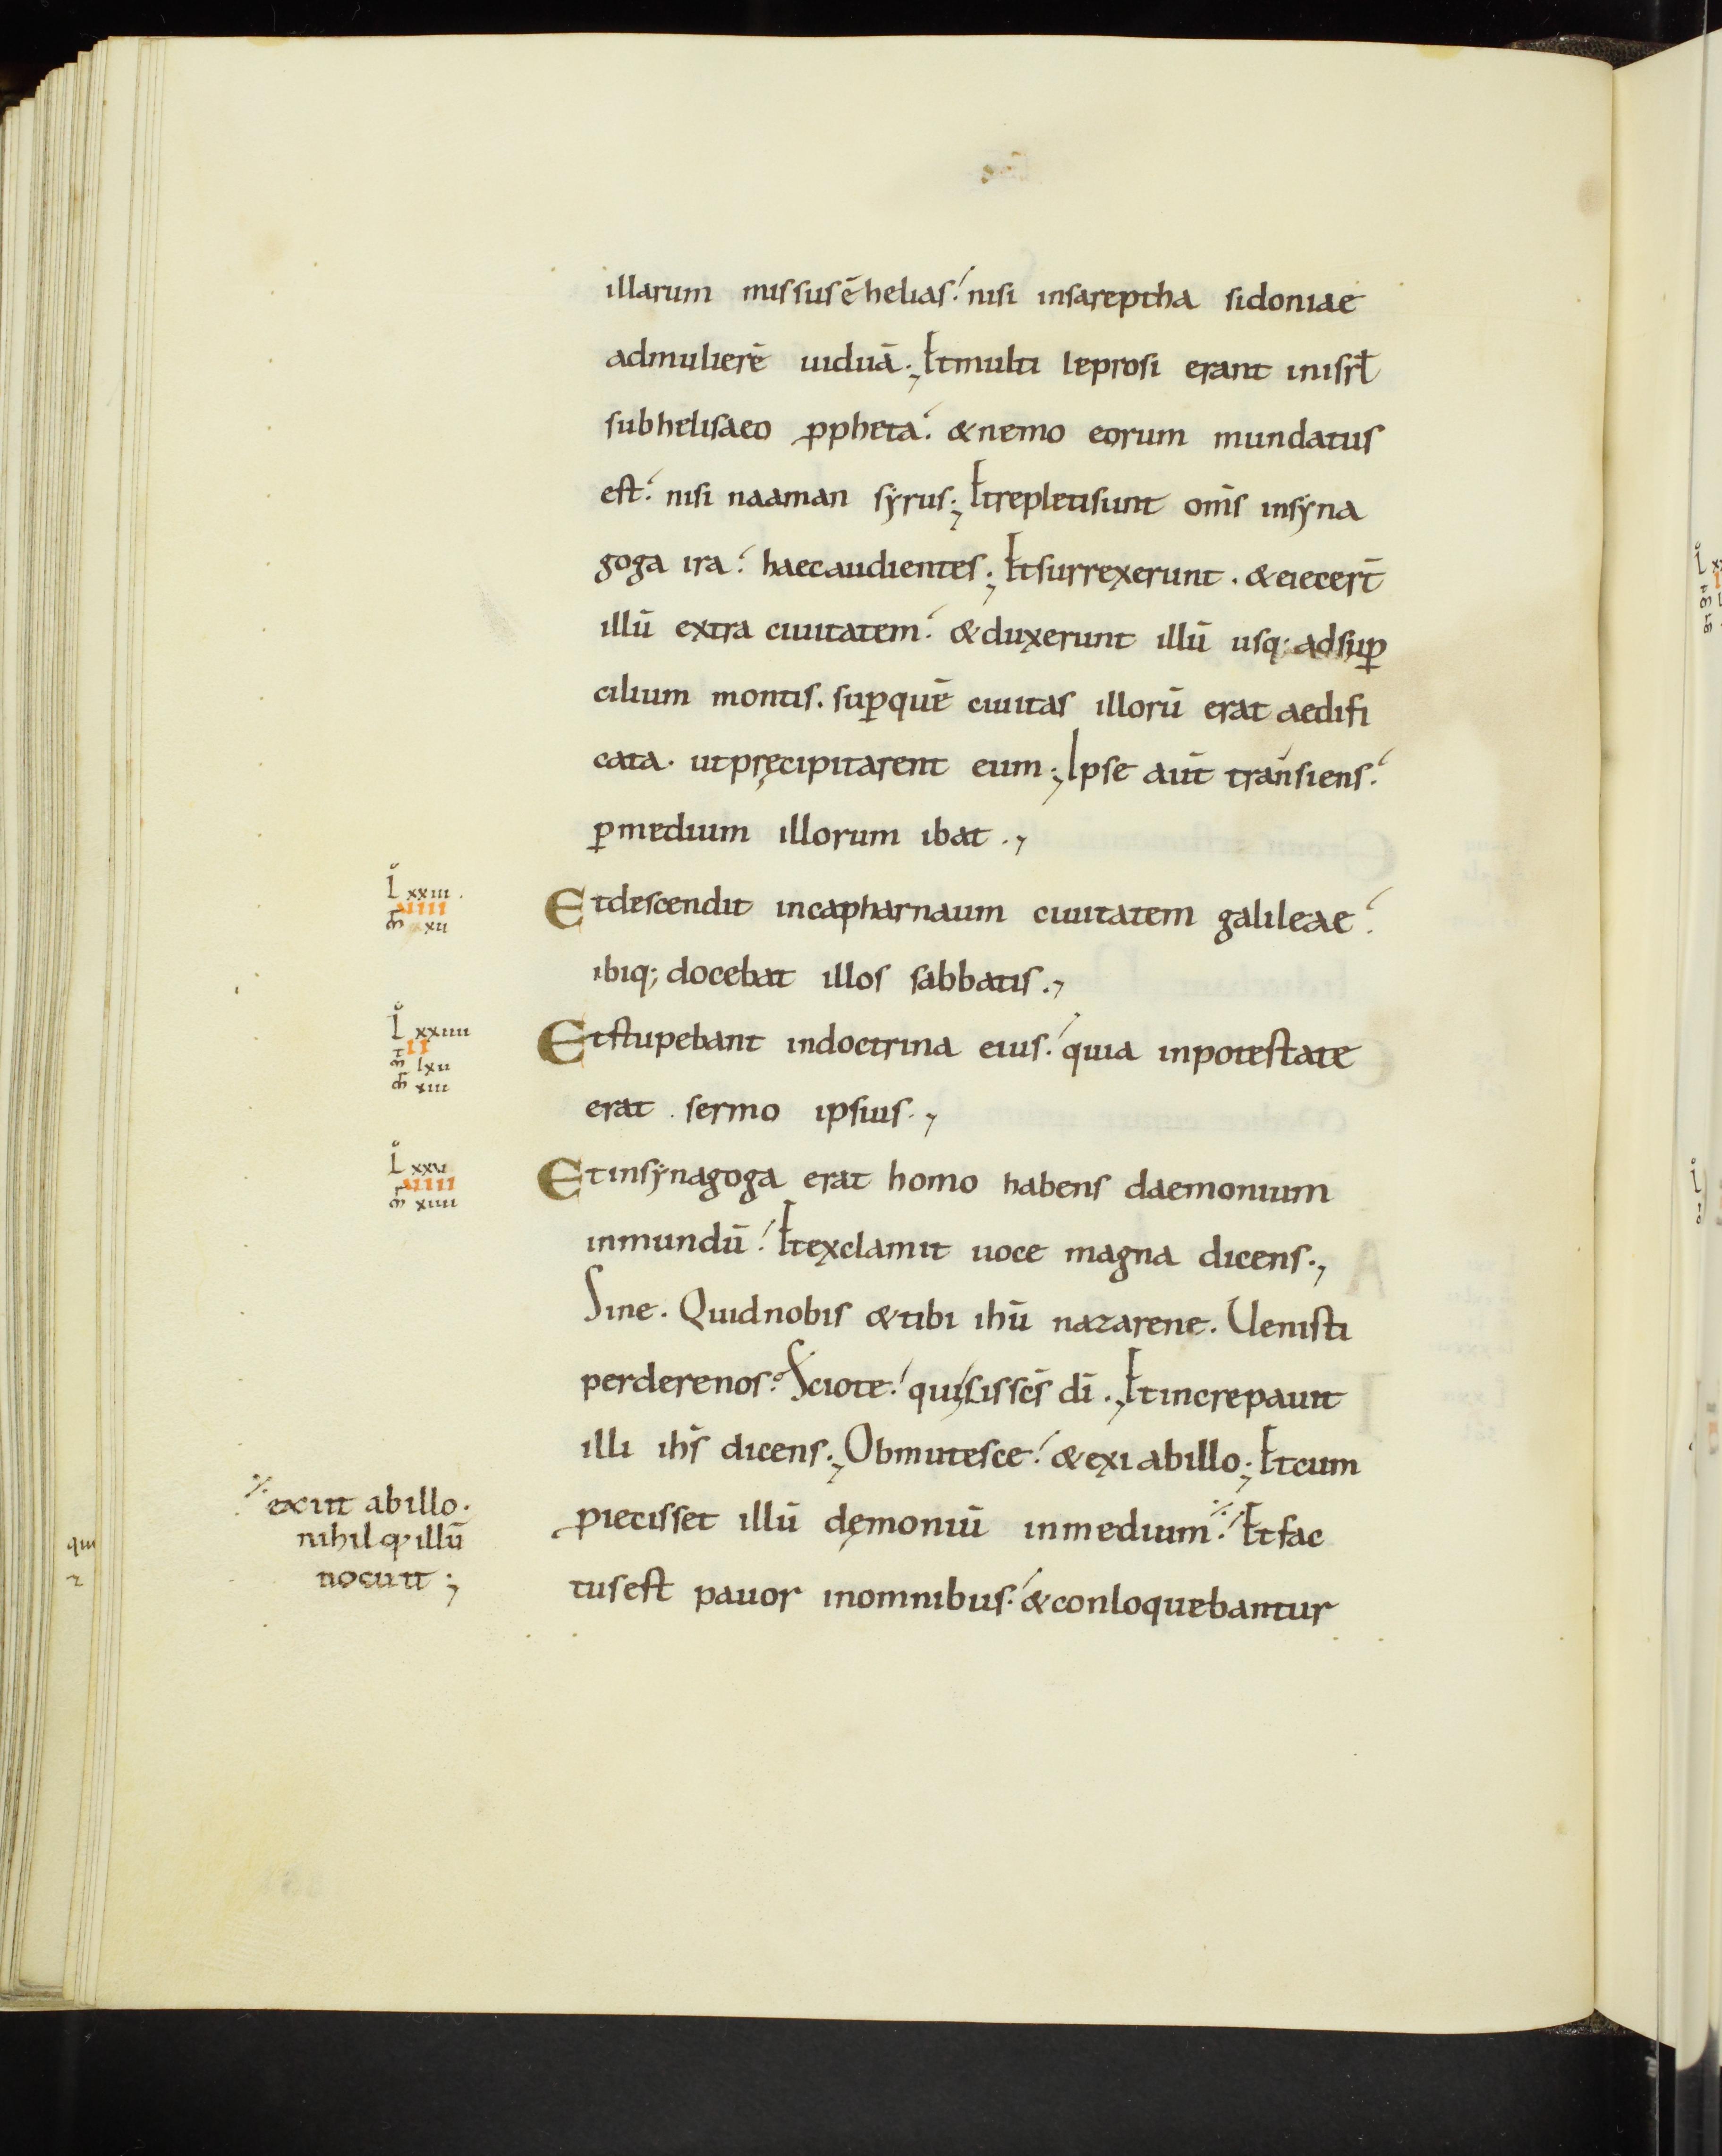 illarum missus ē helias. nisi insareptha sidoniae
admulierē uiduā. Etmulti leprosi erant inisrł
subhelisaeo ꝓpheta. &nemo eorum mundatus
est. nisi naaman syrus; Etrepletisunt om̄s insyna
goga ira. haecaudientes; Etsurrexerunt. &eiecer̄t
illū extra ciuitatem. &duxerunt illū usq; adsuꝑ
cilium montis. suꝑquē ciuitas illorū erat aedifi
cata. utpręcipitarent eum; Ipse aūt transiens.
ꝑmedium illorum ibat.,
L xxiii.
uiiii
mr xii
Etdescendit incapharnaum ciuitatem galileae.
ibiq; docebat illos sabbatis.,
L xxiiii
ii
mt lxii
mr xiii
Etstupebant indoctrina eius. quia inpotestate
erat sermo ipsius.,
L xxu
uiiii
mr xiiii
Etinsynagoga erat homo habens daemonium
inmundū. Etexclamit uoce magna dicens.,
Sine. Quidnobis &tibi ihū nazarene. Uenisti
perderenos. Sciote. quississc̄s dī. Etincrepauit
illi ihs̄ dicens; Obmutesce. &exiabillo; Etcum
ꝓiecisset illū dęmoniū inmedium. Etfac
exiit abillo.
nihilqꝫ illū
nocuit;
tusest pauor inomnibus. &conloquebantur